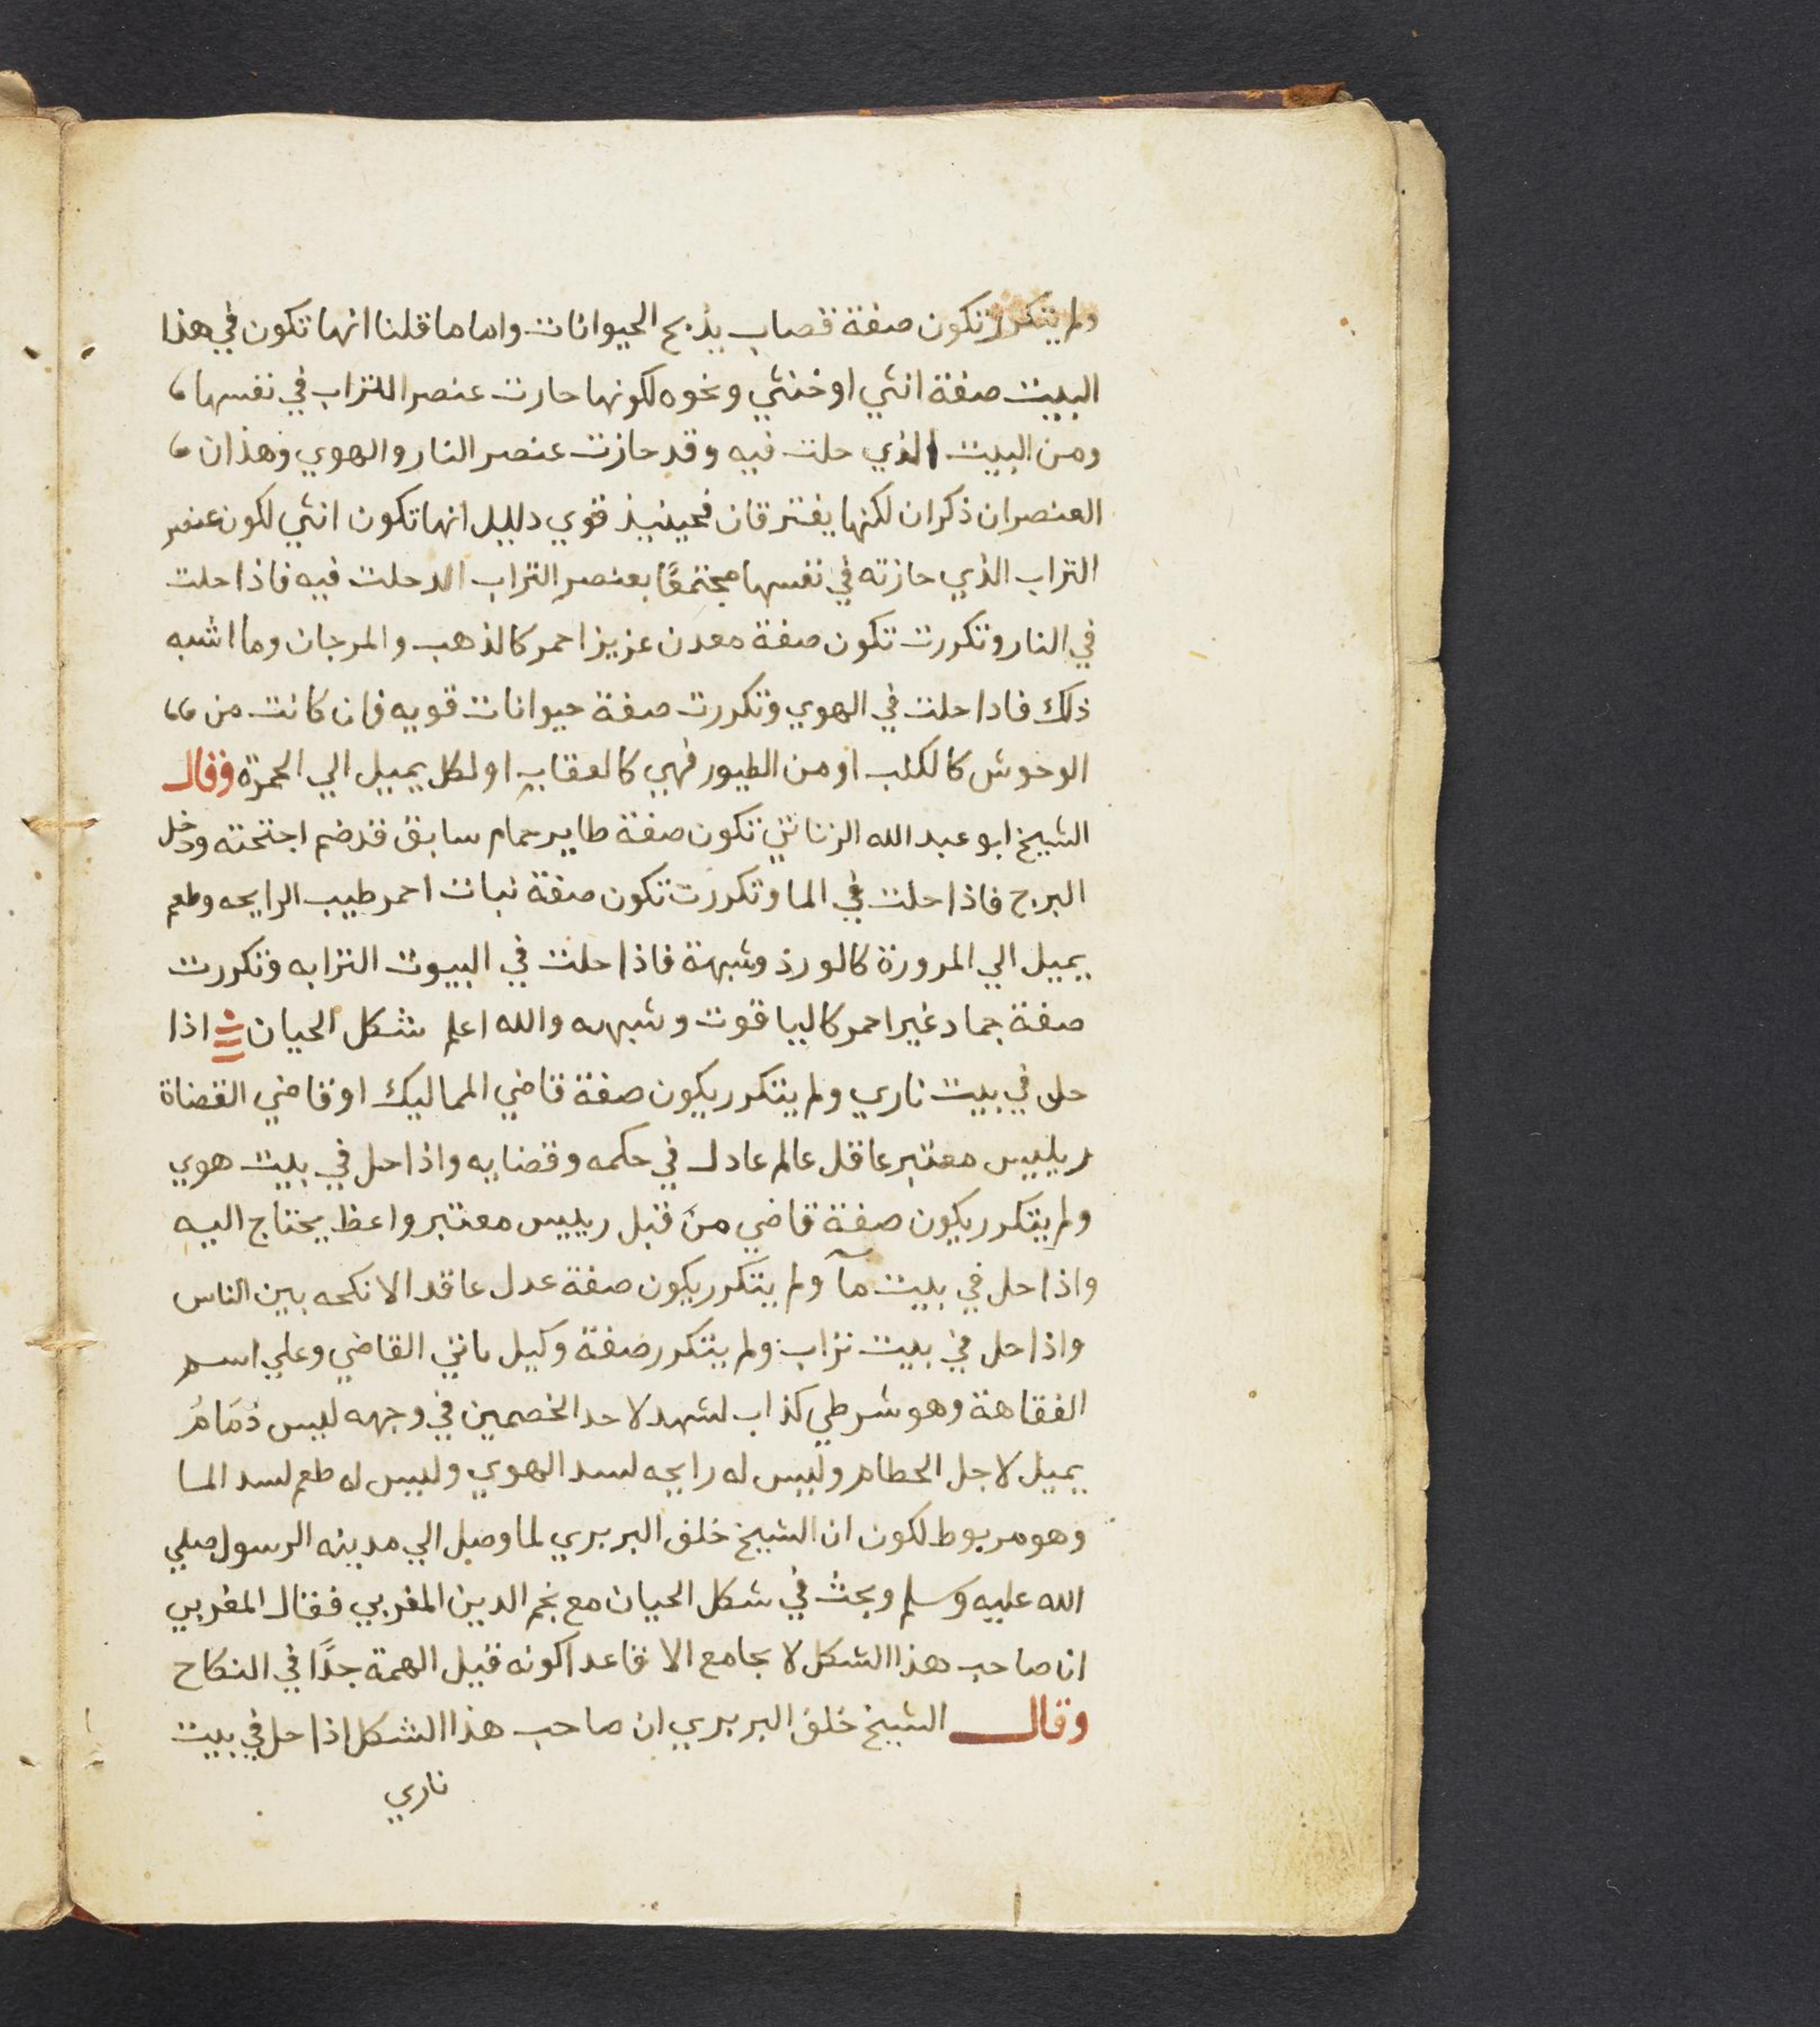 ولم يتكرر تكون صفة قصاب يذبح الحيوانات واما ما قلنا انها تكون في هذا
البيت صفة انثي او خنثي ونحوه لكونها حازت عنصر التراب في نفسها
ومن البيت الذي حلت فيه وقد حازت عنصر النار والهوي وهذان
العنصران ذكران لكنها يفترقان فحينيذ قوي دليل انها تكون انثي لكون عنصر
التراب الذي حازته في نفسها مجتمعًا بعنصر التراب الد حلت فيه فاذا حلت
في النار وتكررت تكون صفة معدن عزيز احمر كالذهب والمرجان وما اشبه
ذلك فادا حلت في الهوي وتكررت صفة حيوانات قويه فان كانت من
الوحوش كالكلب او من الطيور فهي كالعقاب او لكل يميل الي الحمرة وقال
الشيخ ابو عبد الله الزناتي تكون صفة طاير حمام سابق قد ضم اجنحته ودخل
البرج فاذا حلت في الما وتكررت تكون صفة نبات احمر طيب الرايحه وطعم
يميل الي المرورة كالورد وشبهة فاذا حلت في البيوت الترابه وتكررت
صفة جماد غير احمر كالياقوت وشبهه والله اعلم شكل الحيان اذا
حل في بيت ناري ولم يتكرر يكون صفة قاضي المماليك او قاضي القضاة
رييس معتبر عاقل عالم عادل في حكمه وقضايه واذا حل في بيت هوي
ولم يتكرر يكون صفة قاضي من قبل رييس معتبر واعظ يحتاج اليه
واذا حل في بيت مآ ولم يتكرر يكون صفة عدل عاقد الانكحه بين الناس
واذا حل في بيت تراب ولم يتكرر صفة وكيل ياتي القاضي وعلي اسم
الفقاهة وهو شرطي كذاب لشهد لاحد الخصمين في وجهه ليس ذمام
يميل لاجل الحطام وليس له رايحه لسد الهوي وليس له طعم لسد الما
وهو مربوط لكون ان الشيخ خلف البربري لما وصل الي مدينه الرسول صلي
الله عليه وسلم وبحث في شكل الحيان مع نجم الدين المغربي فقال المغربي
ان صاحب هذا الشكل لا يجامع الا قاعد اكونه قيل الهمة جدًا في النكاح
وقال الشيخ خلف البربري ان صاحب هذا الشكل اذا حل في بيت
ناري